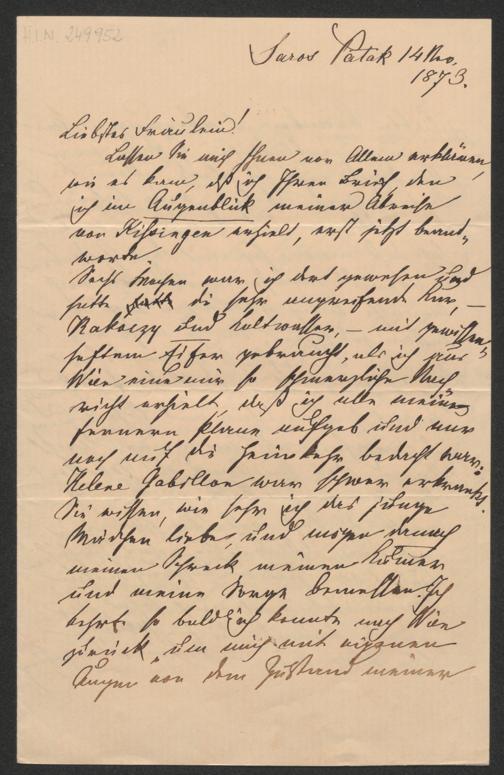 H.I.N. 249952
Saros Patak 14 Nov.
1873.
Liebstes Fräulein!
Lassen Sie mich Ihnen vor Allem erklären,
wie es kam, daß ich Ihren Brief, den
ich im Augenblick meiner Abreise
von Kissingen erhielt, erst jetzt beant-
worte.
Sechs Wochen war ich dort gewesen und
hatte die sehr angreifende Kur, –
Rakoczy und Kaltwasser, – mit gewissen-
haftem Eifer gebraucht, als ich aus
Wien eine mir so schmerzliche Nach
richt erhielt, daß ich alle meine
fernern Plane aufgab und nur
noch auf die Heimkehr bedacht war:
Helene Gabillon war schwer erkrankt.
Sie wissen, wie sehr ich das junge
Mädchen liebe, und mögen danach
meinen Schreck meinen Kummer
und meine Sorge bemessen. Ich
kehrte so bald ich konnte nach Wien
zurück, um mich mit eigenen
Augen von dem Zustand meiner